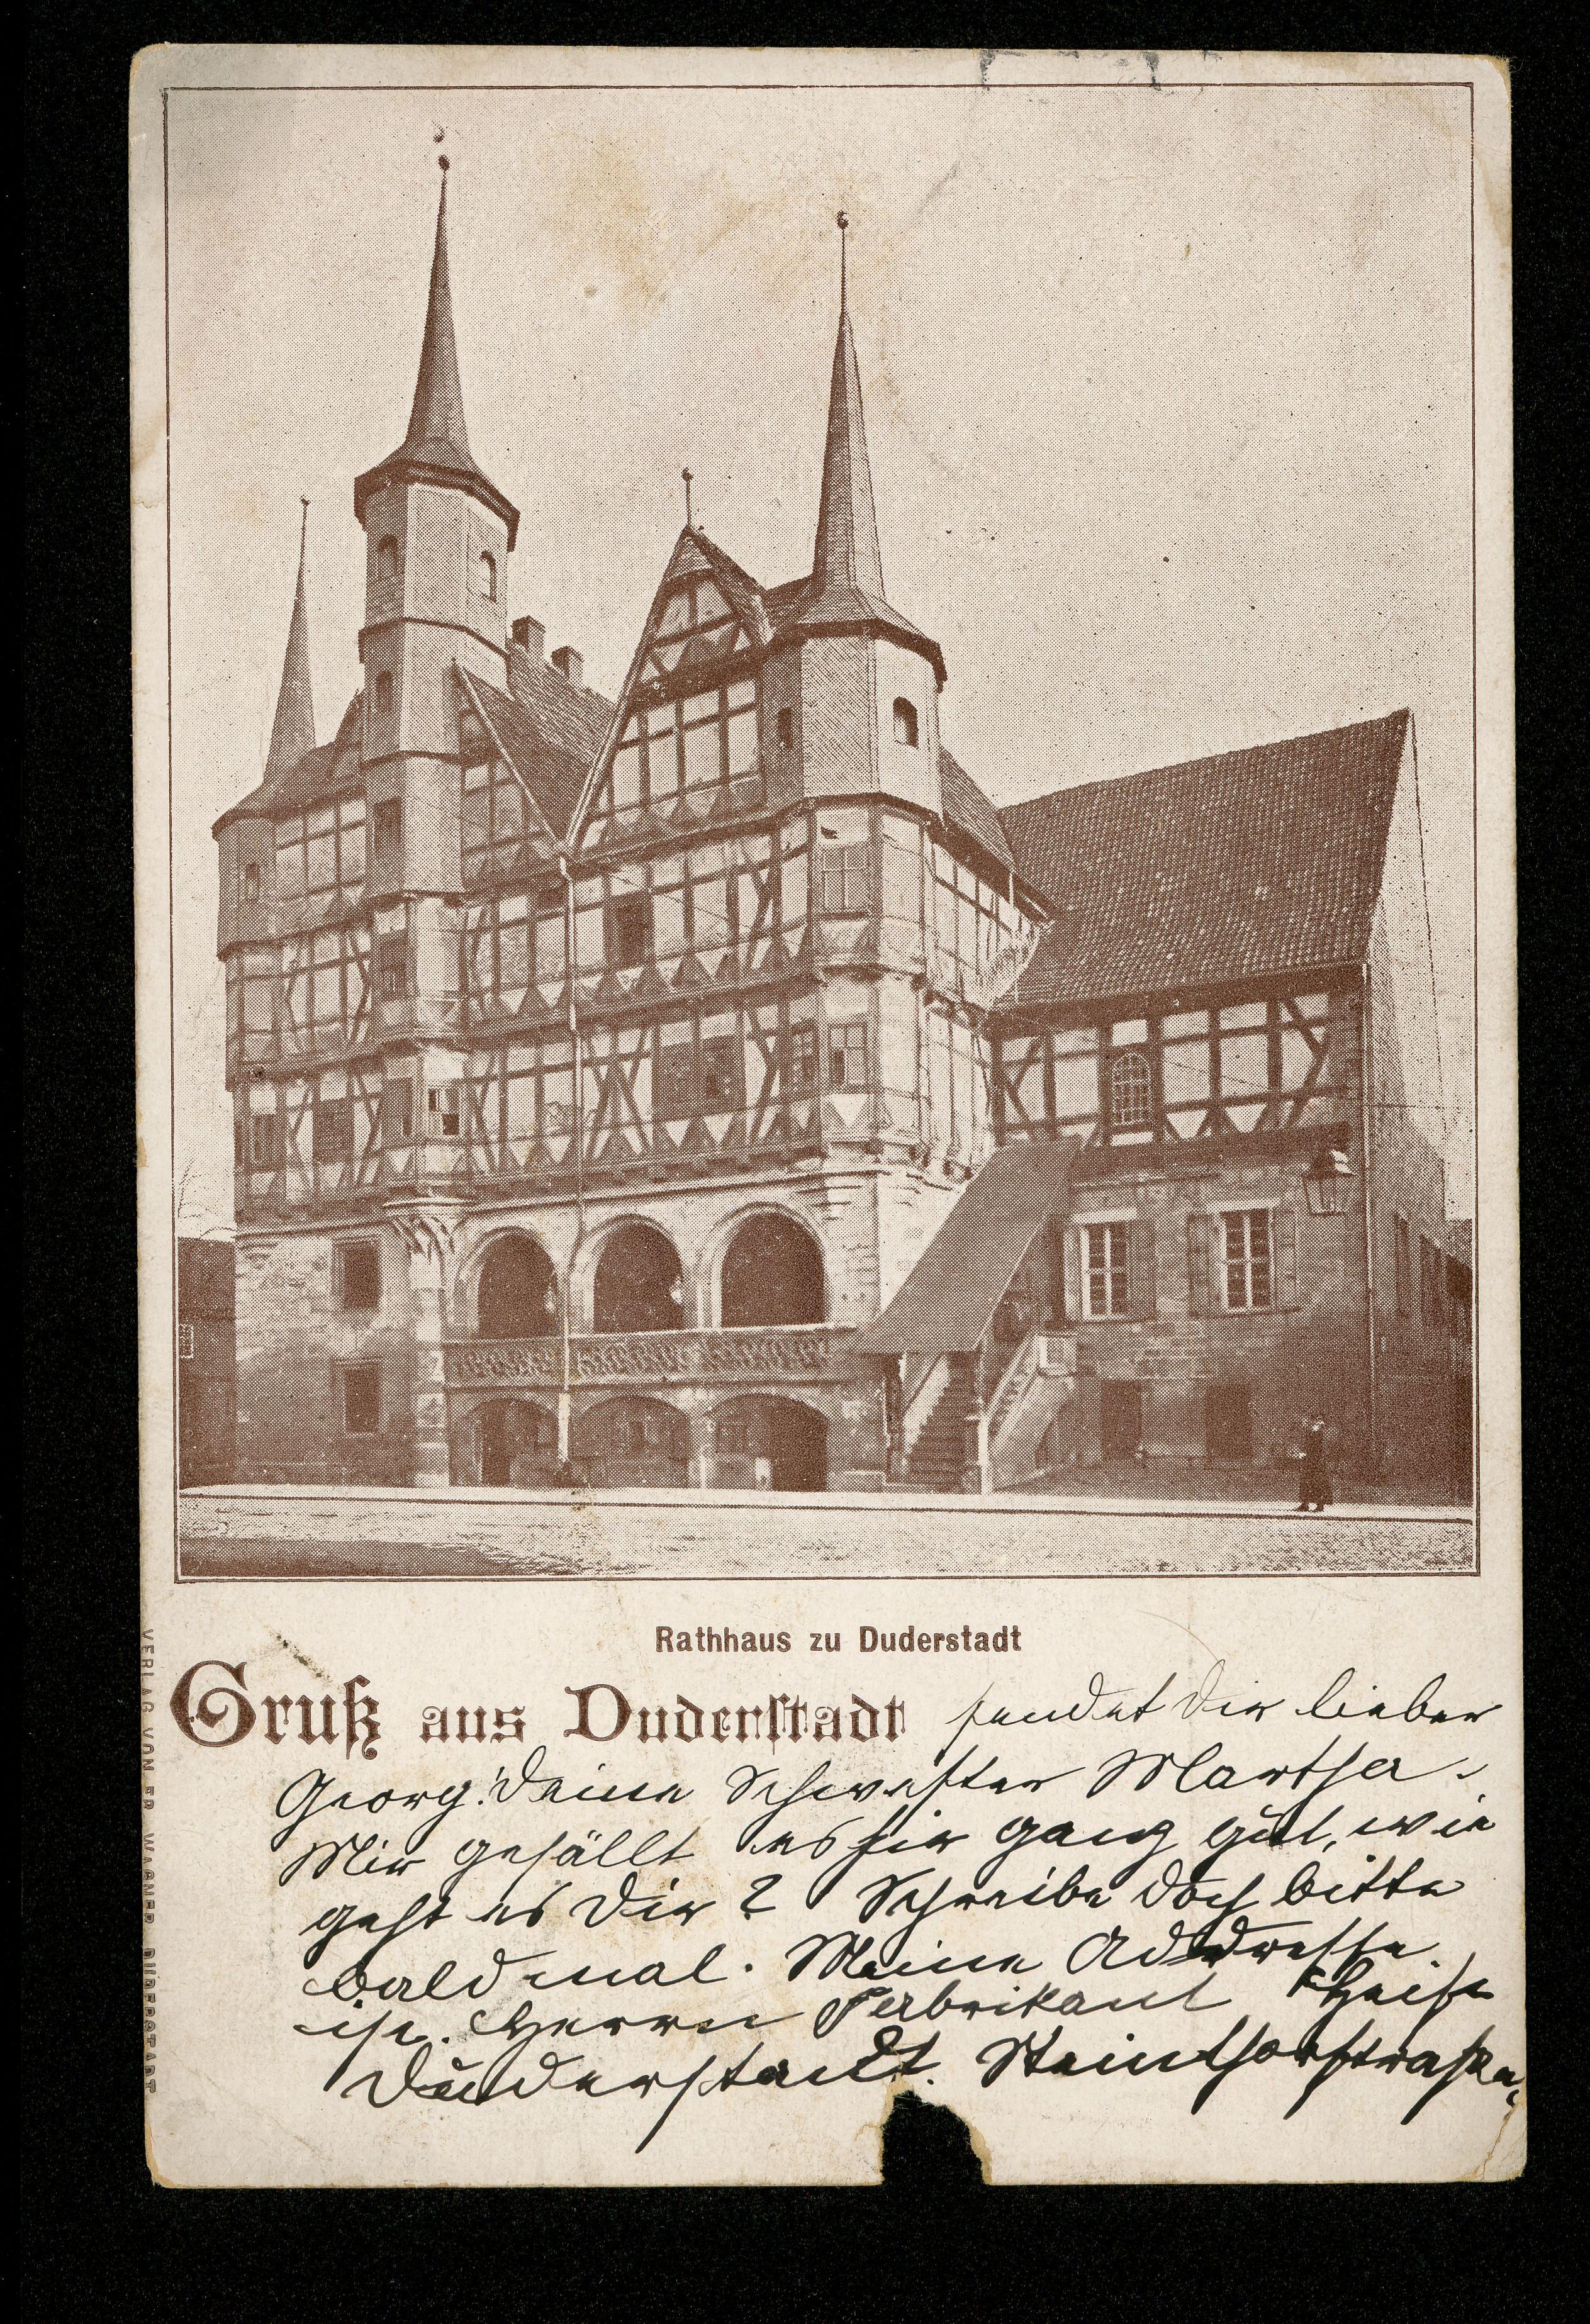 Rathhaus zu Duderstadt
Gruß aus Duderstadt sendet Dir lieber
Georg! Deine Schwester Martha.
Mir gefällt es hier ganz gut, wie
geht es Dir? Schreibe doch bitte
bald mal. Meine Addresse
ist. Herrn Fabrikant Heise
Duderstadt. Steinthorstraße,
VERLAG VON FR. WAGNER DUDERSTADT